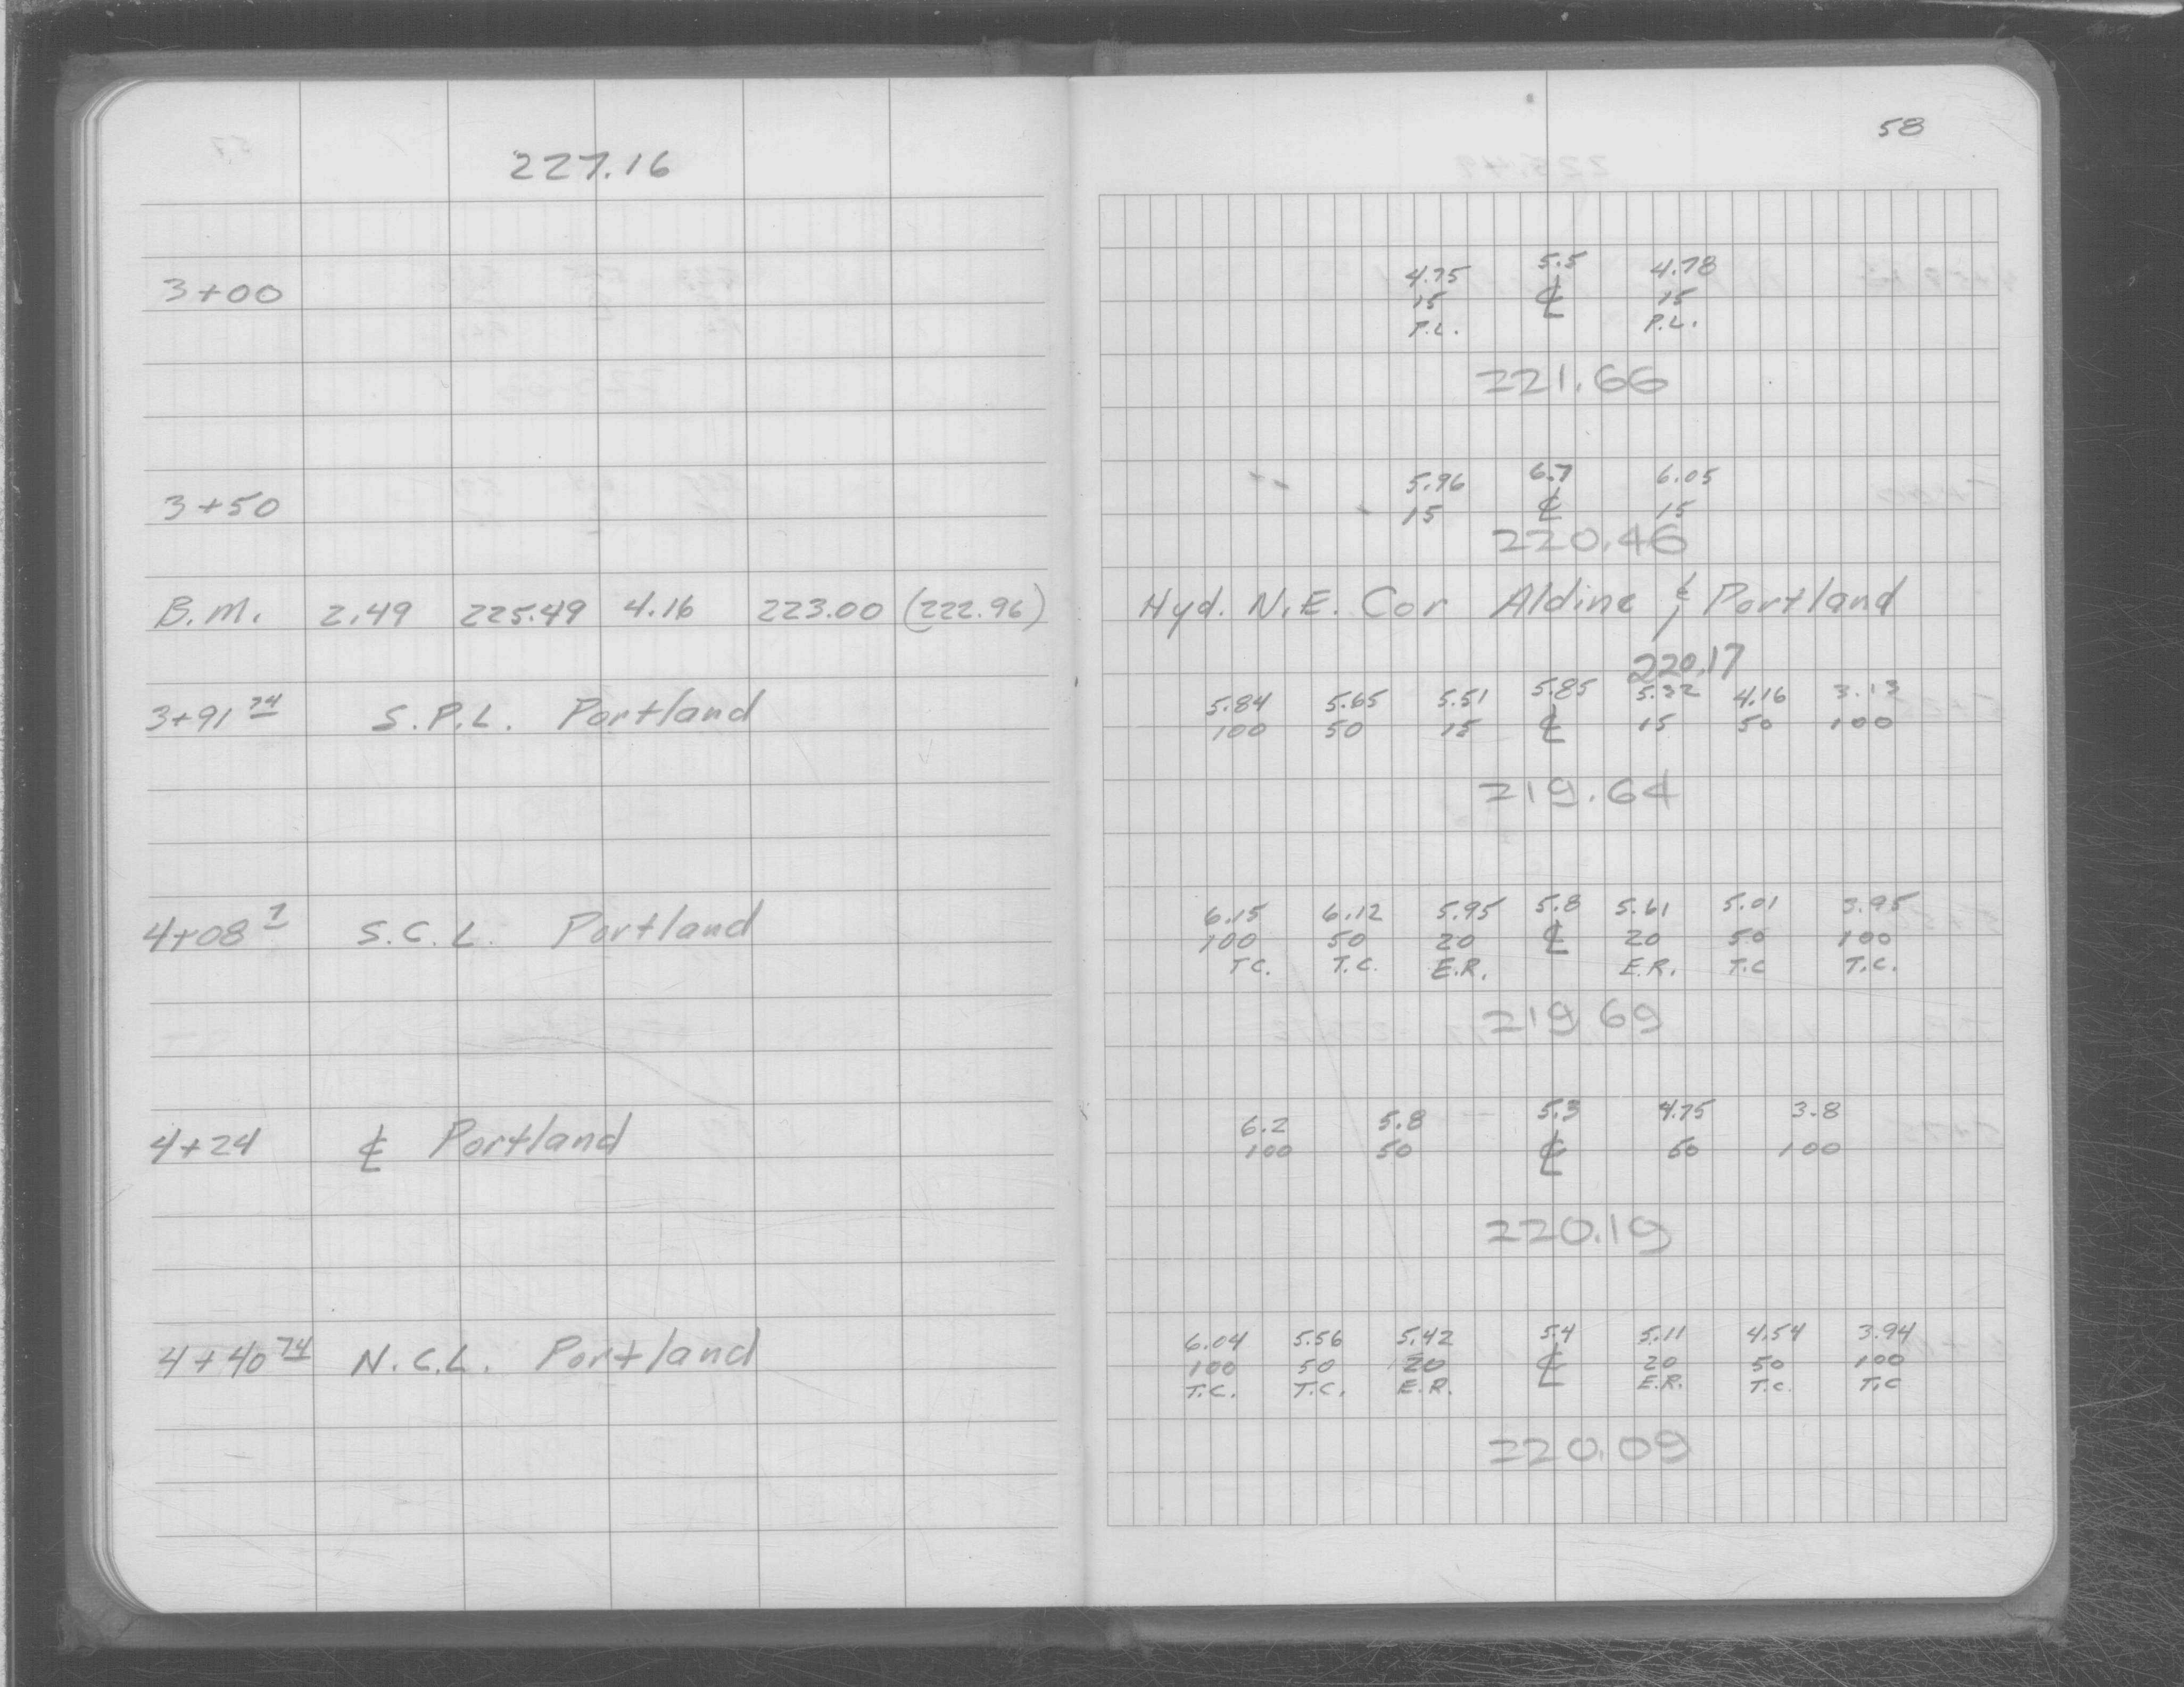 58
227.16
4.75 5.5 4.78
3+00 15 ℄ 15
P.L. P.L.
221.66
5.96 6.7 6.05
3+50 15 ℄ 15
220.46
B.M. 2.49 225.49 4.16 223.00 (222.96) Hyd. N.E. Cor Aldine & Portland
220.17
5.84 5.65 5.51 5.85 5.32 4.16 3.13
3+91 74 S.P.L. Portland 100 50 15 ℄ 15 50 100
219.64
6.15 6.12 5.95 5.8 5.61 5.01 3.95
4+08 7 S.C.L. Portland 100 50 20 ℄ 20 50 100
T.C. T.C. E.R. E.R. T.C T.C.
219.69
6.2 5.8 5.3 4.75 3.8
4+24 ℄ Portland 100 50 ℄ 50 100
220.19
6.04 5.56 5.42 5.4 5.11 4.54 3.94
4+40 74 N.C.L. Portland 100 50 20 ℄ 20 50 100
T.C. T.C. E.R. E.R. T.C. T.C
220.09